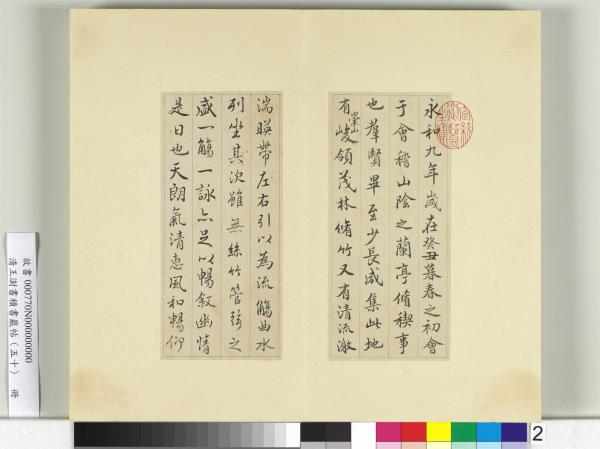 永和九年歲在癸丑暮春之初會
于會稽山陰之蘭亭脩稧事
也羣賢畢至少長咸集此地
有崇山峻領茂林脩竹又有清流激
湍暎帶左右引以為流觴曲水
列坐其次雖無絲竹管弦之
盛一觴一詠亦足以暢叙幽情
是日也天朗氣清惠風和暢仰
故書000770N000000000
清王澍書積書巖帖(五十) 冊
2